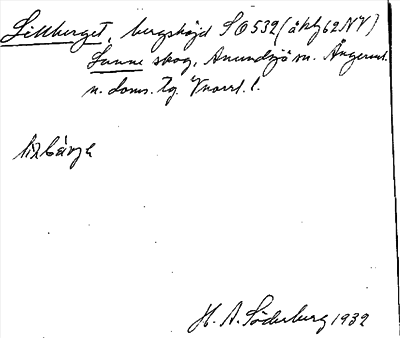 Lillberget, bergshöjd SO532 (äkbl 62NV)
Sunne skog, Anundsjö sn. Ångerml.
n. doms. Tg. Vnorrl. l.
H. A. Söderberg 1932